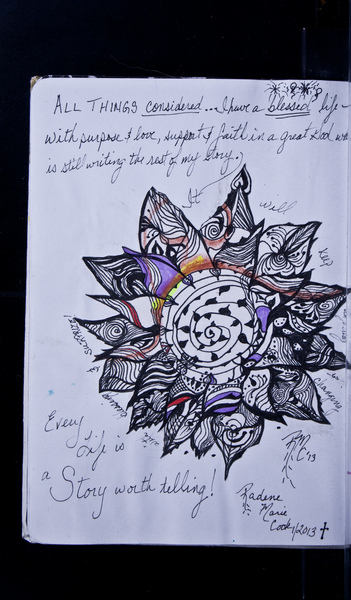 ALL THINGS considered... I have a blessed life -
with purpose & love, support & faith in a great God who
is still writing the rest of my story.
It
will
keep
changing
& surprise!
Every
Life is
a
Story worth telling!
RMC '13
Radene
Marie
Cook 1/2013